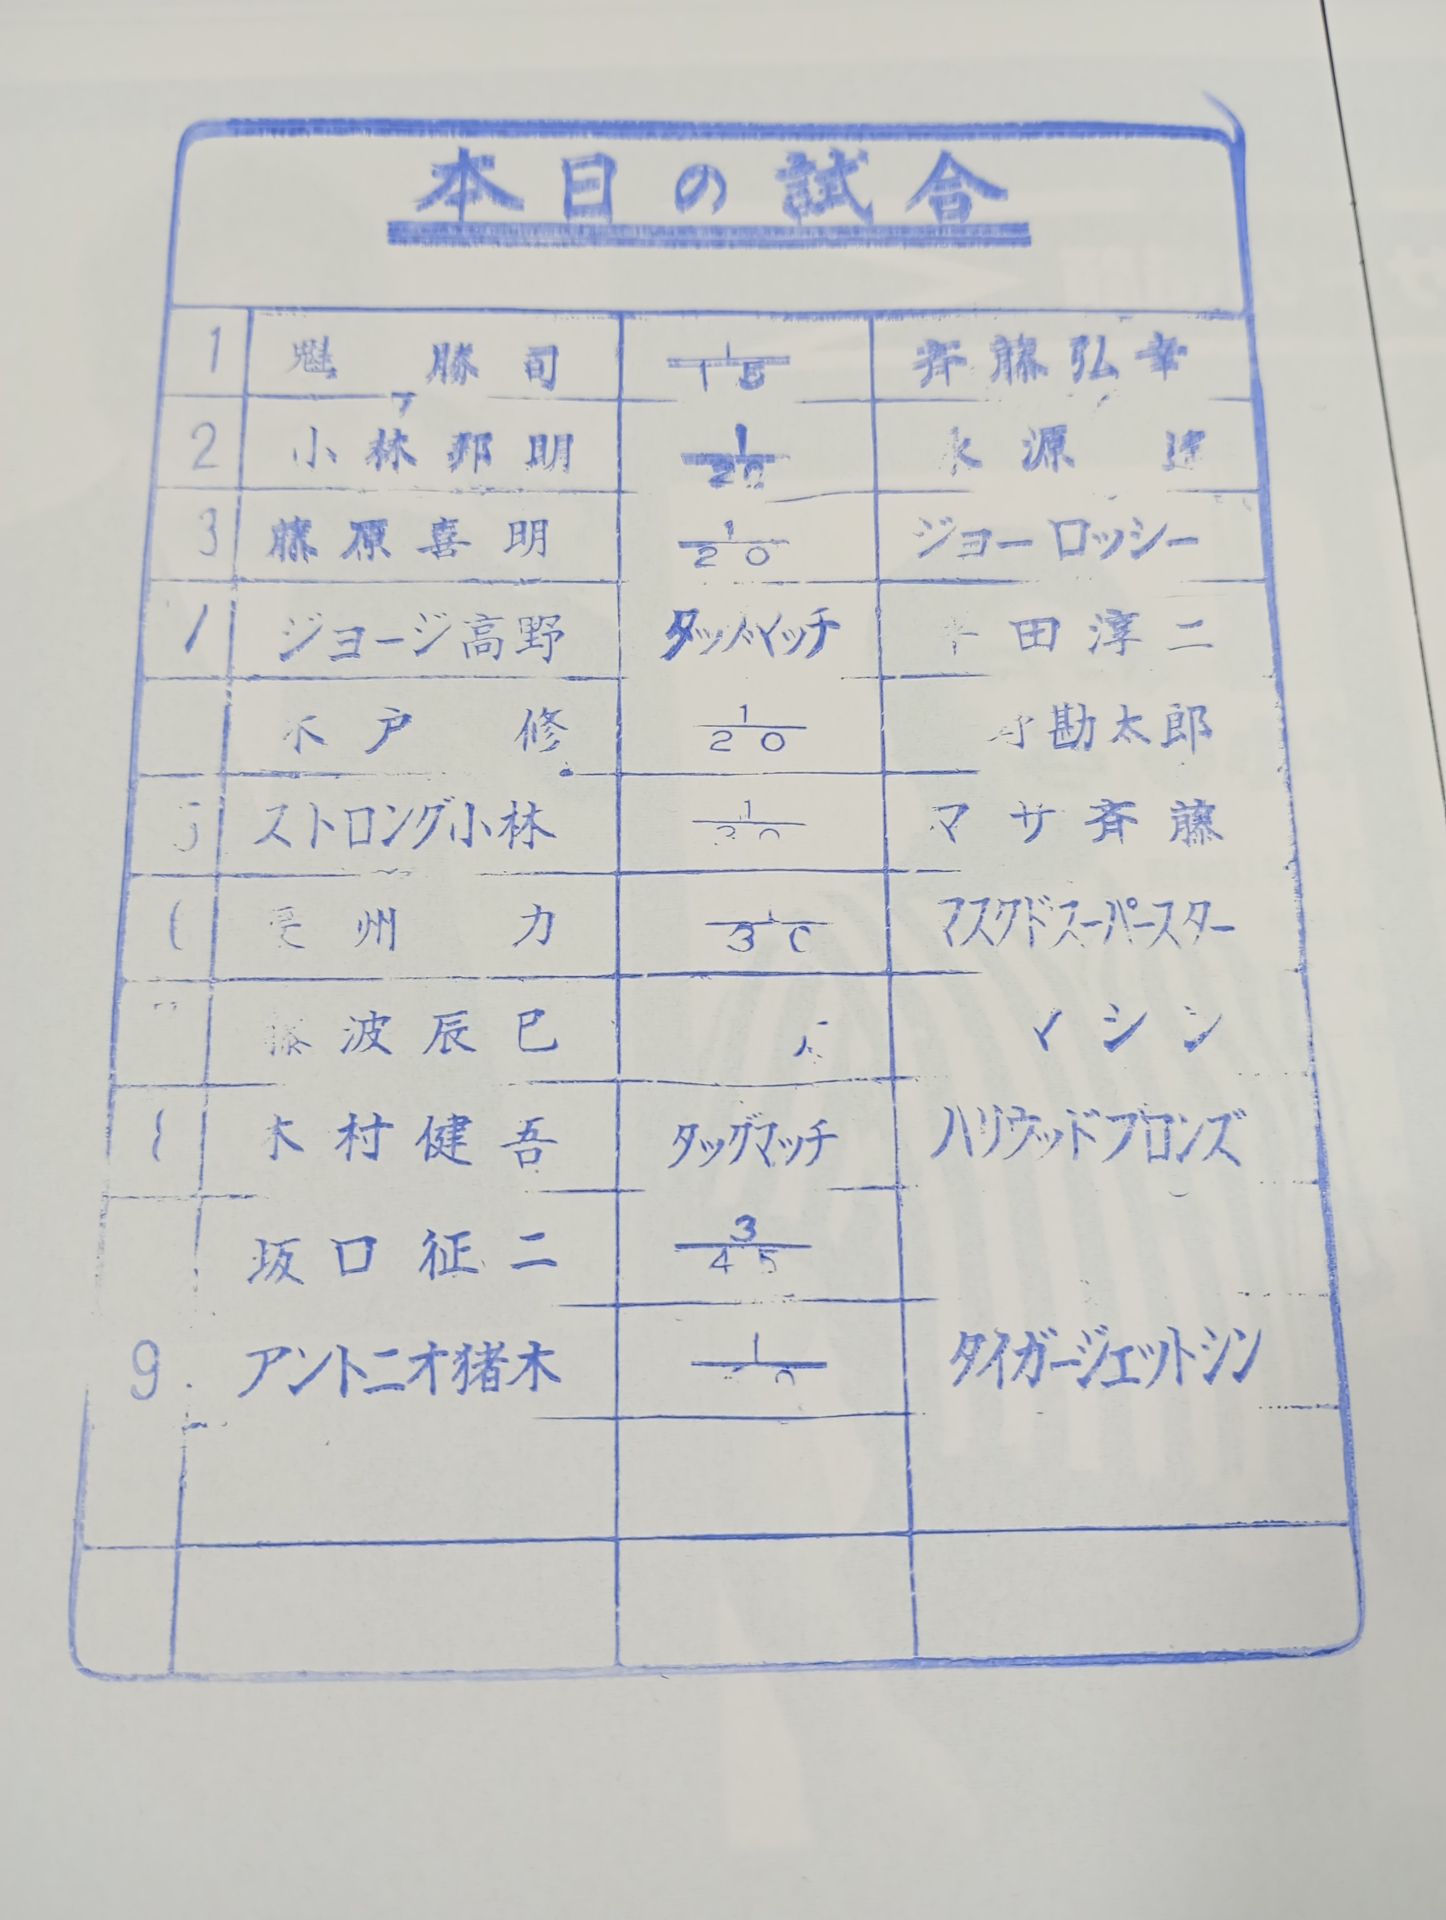 本日の試合
1 魁 勝司 1/15 斉藤弘幸
2 小林邦明 1/20 永源 遥
3 藤原喜明 1/20 ジョーロッシー
ジョージ高野 タッグマッチ 田淳二
木戸 修 1/20 勘太郎
ストロング小林 1 マサ斉藤
長州 力 1/30 マスクドスーパースター
藤波辰巳 シン
木村健吾 タッグマッチ ハリウッドブロンズ
坂口征二 3/45
9 アントニオ猪木 1 タイガージェットシン